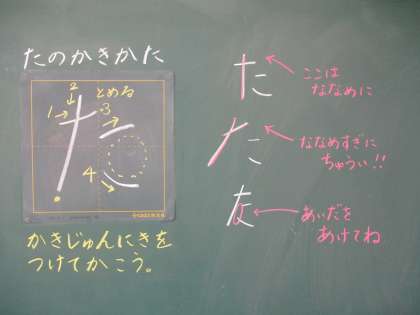 たのかきかた
1
2
とめる
3
4
かきじゅんにきを
つけてかこう。
た
ここは
ななめに
た
ななめすぎに
ちゅうい!!
な
あいだを
あけてね